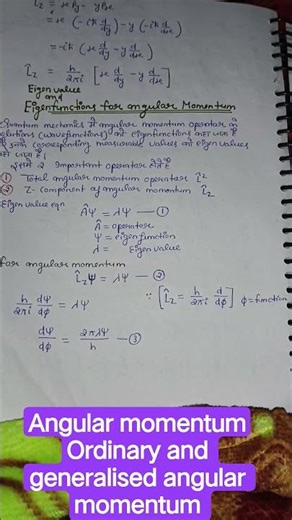 L̂z = x p̂y - y p̂x
= x (-iħ d/dy) - y (-iħ d/dx)
= -iħ (x d/dy - y d/dx)
L̂z = h/2πi [x d/dy - y d/dx]
Eigen value
and
Eigenfunctions for angular Momentum
Quantum mechanics में angular momentum operator के
solutions (wavefunctions) को eigenfunctions कहा जाता है
इनके corresponding measurable values को eigen values
कहा जाता है।
इसमें 2 Important operator होते हैं
① Total angular momentum operator L̂²
② Z- Component of angular momentum L̂z
Eigen value eqn
Âψ = λψ — ①
Â = operator
ψ = eigen function
λ = Eigen value
for angular momentum
L̂zψ = λψ — ②
h/2πi dψ/dϕ = λψ ∵ [L̂z = h/2πi d/dϕ] ϕ = function
dψ/dϕ = 2πλψ/h — ③
Angular momentum
Ordinary and
generalised angular
momentum